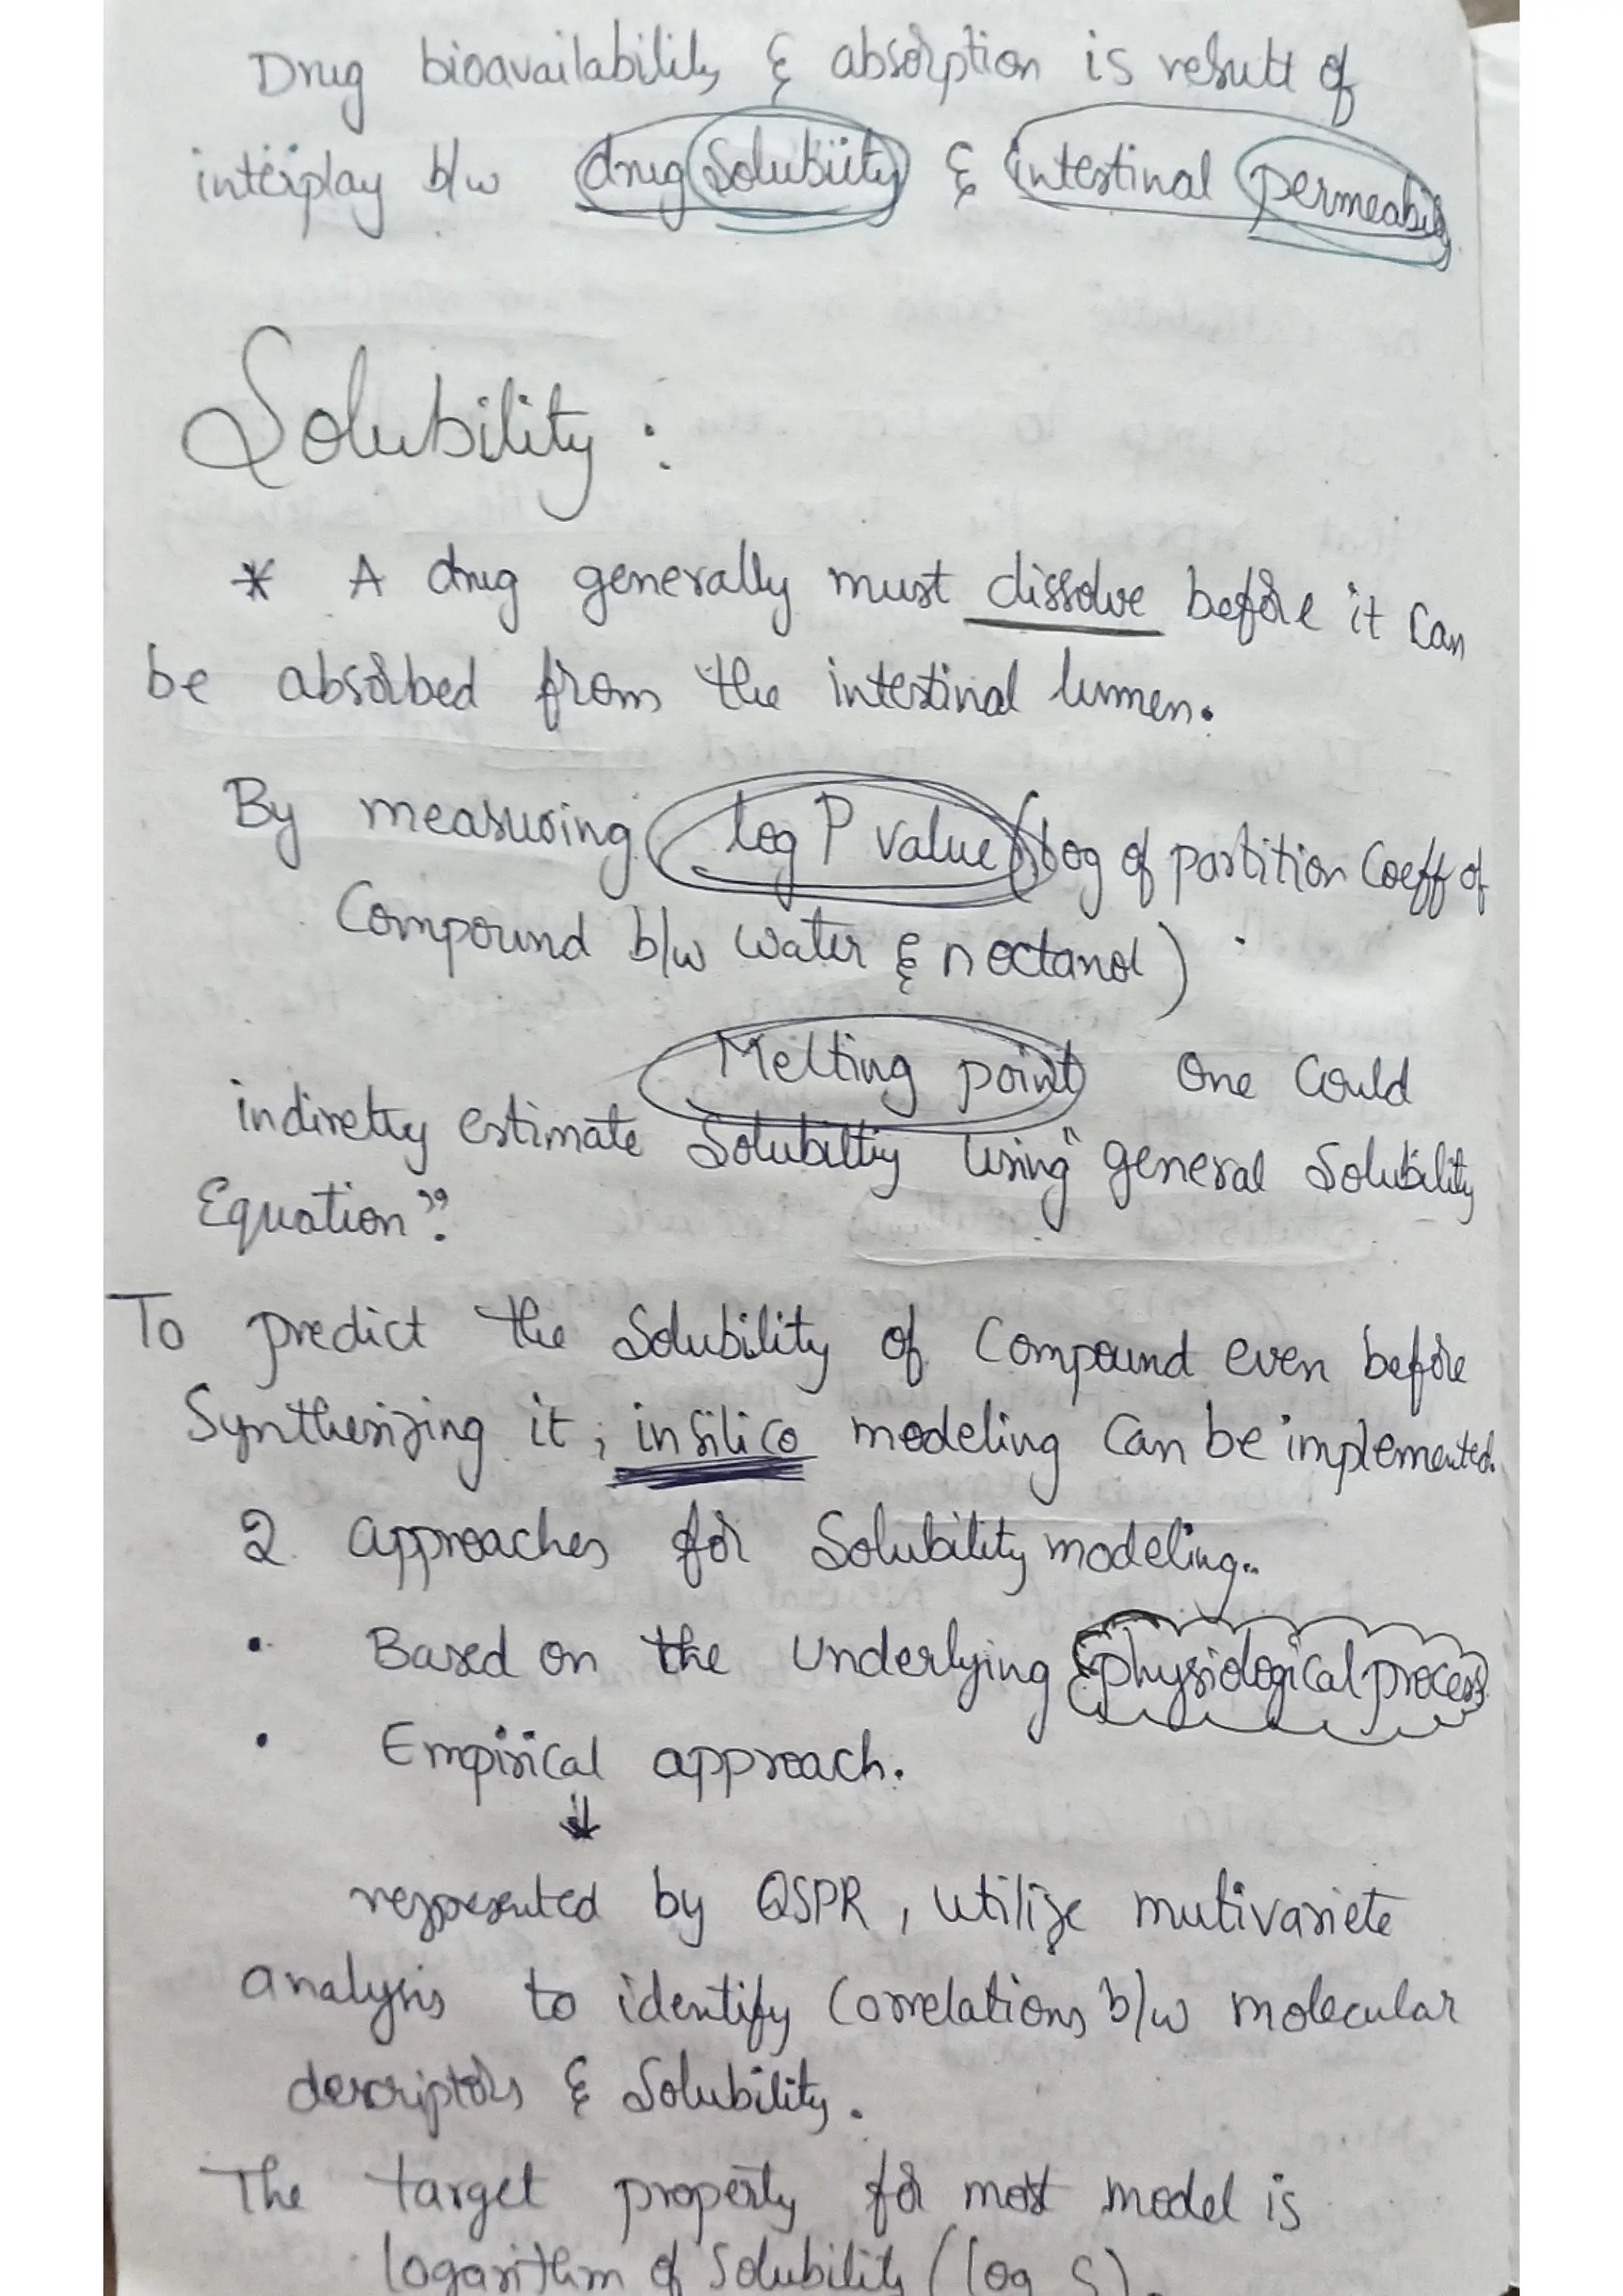 Drug bioavailability & absorption is result of
interplay b/w drug solubility & intestinal permeabi
Solubility :
* A drug generally must dissolve before it can
be absorbed from the intestinal lumen.
By measuring log P value (log of partition coeff of
compound b/w water & n octanol)
Melting point one could
indiretly estimate solubiltiy using "general solubility
Equation".
To predict the solubility of compound even before
synthesizing it, insilico modeling can be implemented.
2 approaches for solubility modeling..
• Based on the underlying physiological process
• Empirical approach.
↓
represented by QSPR, utilize mutivariete
analysis to identify correlations b/w molecular
descriptors & solubility.
The target property for most model is
logarithm of solubility (log S).